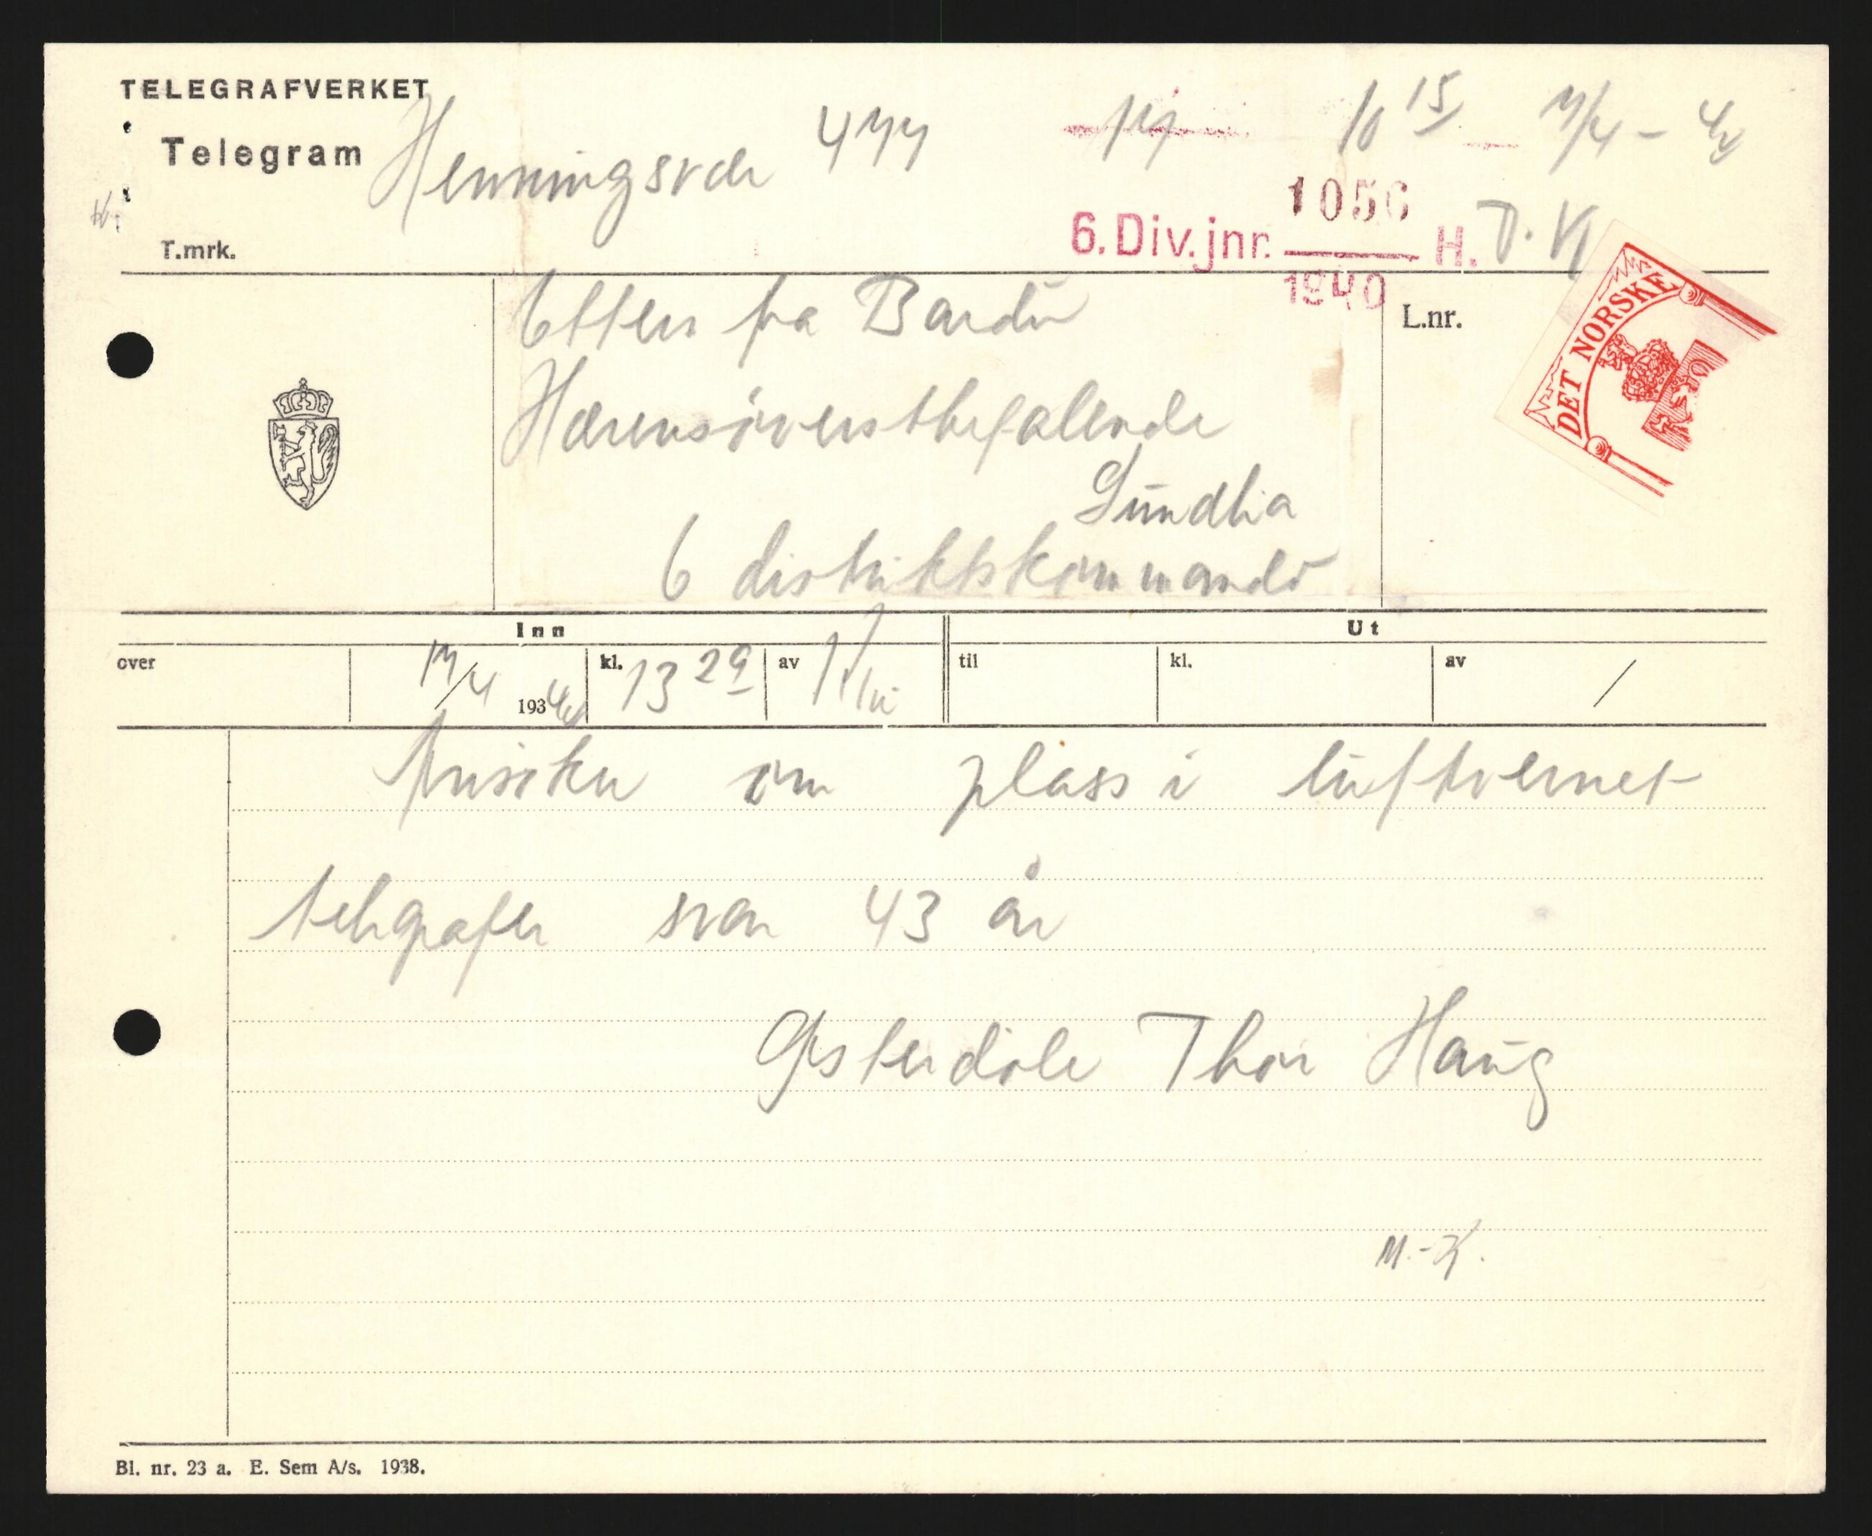 TELEGRAFVERKET
Telegram
Henningsvær 477 14 10 15 17/4 - 40
T.mrk.
6. Div. jnr. 1056 H. D.K
1940
Etters fra Bardu
L.nr.
DET NORSKE
Hærensøverstbefalende
Sundlia
6 distriktskommando
Inn
Ut
over
17/4 1940
kl. 13 29
av
til
kl.
av /
Ansøker om plass i luftvernet
telegrafer svar 43 år
Østerdøle Thor Haug
M.-K.
Bl. nr. 23 a. E. Sem A/s. 1938.